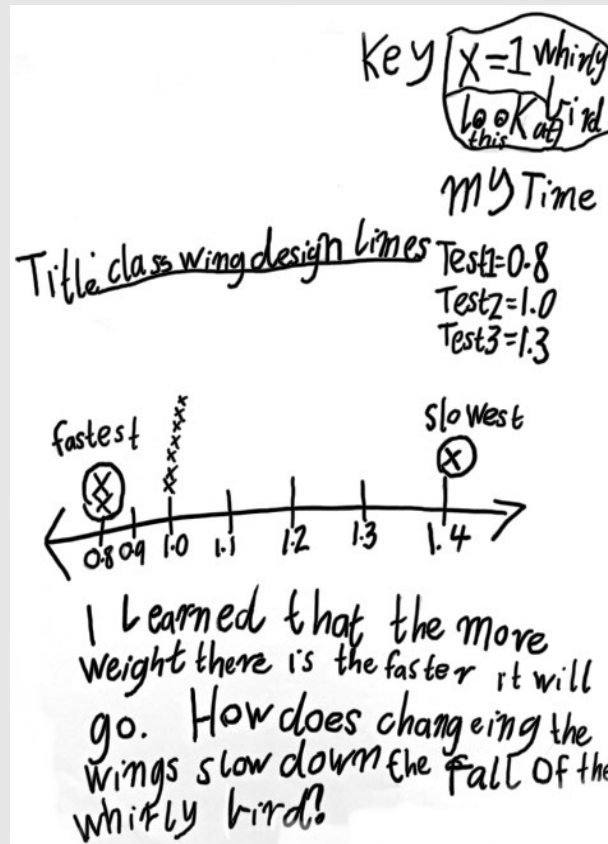 Key X=1 whirly
Look at bird
this
my Time
Title: class wing design times
Test1=0.8
Test2=1.0
Test3=1.3
fastest
slowest
x
x
x
x
x
x
x
x
x
x
x
0.8 0.9 1.0 1.1 1.2 1.3 1.4
I Learned that the more
weight there is the faster it will
go. How does changeing the
wings slow down the fall of the
whirly bird?